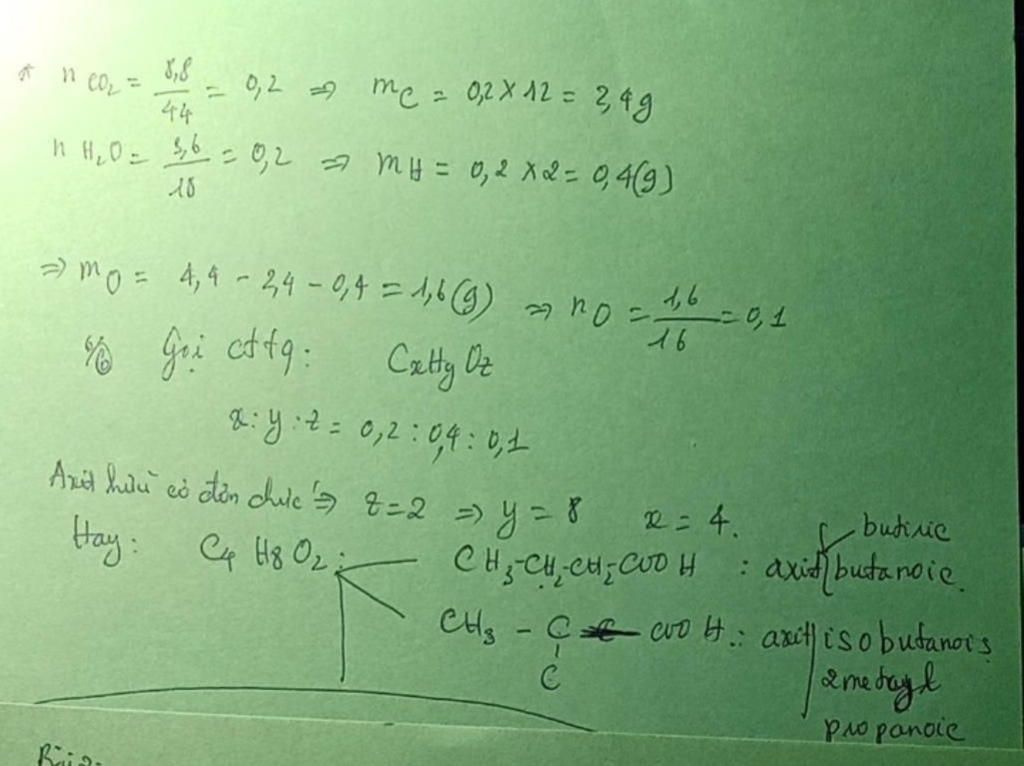 * nCO₂ = 8,8/44 = 0,2 ⇒ mC = 0,2 × 12 = 2,4g
nH₂O = 3,6/18 = 0,2 ⇒ mH = 0,2 × 2 = 0,4(g)
⇒ mO = 4,4 - 2,4 - 0,4 = 1,6(g) ⇒ nO = 1,6/16 = 0,1
Gọi cttq: CxHyOz
x : y : z = 0,2 : 0,4 : 0,1
Axit hữu cơ đơn chức ⇒ z = 2 ⇒ y = 8 x = 4.
Hay: C4H8O2: butiric
CH₃-CH₂-CH₂-COOH : axit butanoic.
CH₃ - C - COOH : axit isobutanois
C 2metayl
propanoic
Bài 2: